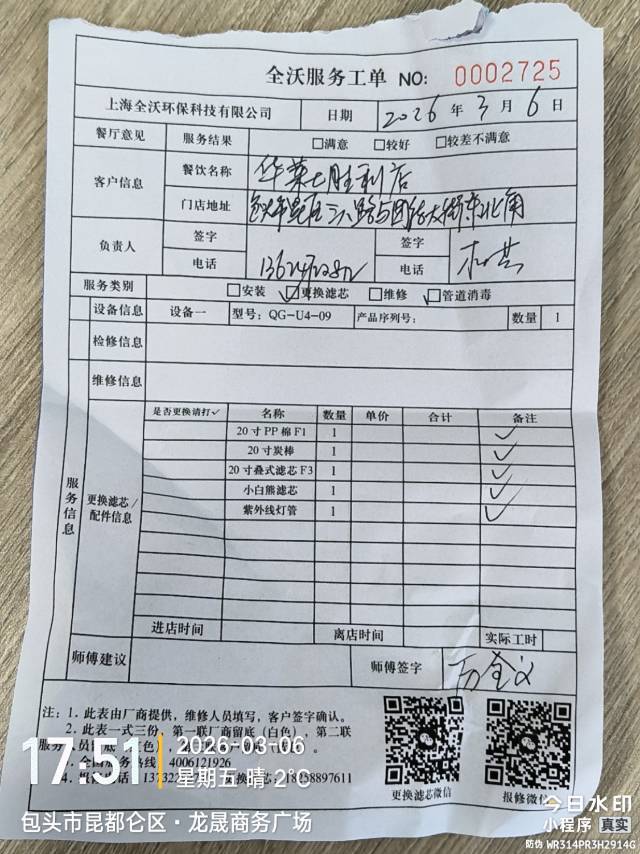 全沃服务工单 NO: 0002725
上海全沃环保科技有限公司 日期 2026 年 3 月 6 日
餐厅意见 服务结果 □满意 □较好 □较差不满意
客户信息 餐饮名称 华莱士胜利店
门店地址 包头市昆区三八路与团结大街东北角
负责人 签字 签字
电话 电话
服务类别 □安装 ☑更换滤芯 □维修 ☑管道消毒
设备信息 设备一 型号: QG-U4-09 产品序列号: 数量 1
检修信息
维修信息
服务信息
更换滤芯/配件信息
是否更换请打✓ 名称 数量 单价 合计 备注
20寸PP棉F1 1 ✓
20寸炭棒 1 ✓
20寸叠式滤芯F3 1 ✓
小白熊滤芯 1 ✓
紫外线灯管 1 ✓
进店时间 离店时间 实际工时
师傅建议 师傅签字
注: 1. 此表由厂商提供, 维修人员填写, 客户签字确认。
2. 此表一式三份, 第一联厂商留底(白色), 第二联
4006121926
18258897611
更换滤芯微信 报修微信
17:51 2026-03-06
星期五·晴·2℃
包头市昆都仑区·龙晟商务广场
今日水印
小程序 真实
防伪 WR314PR3H2914G